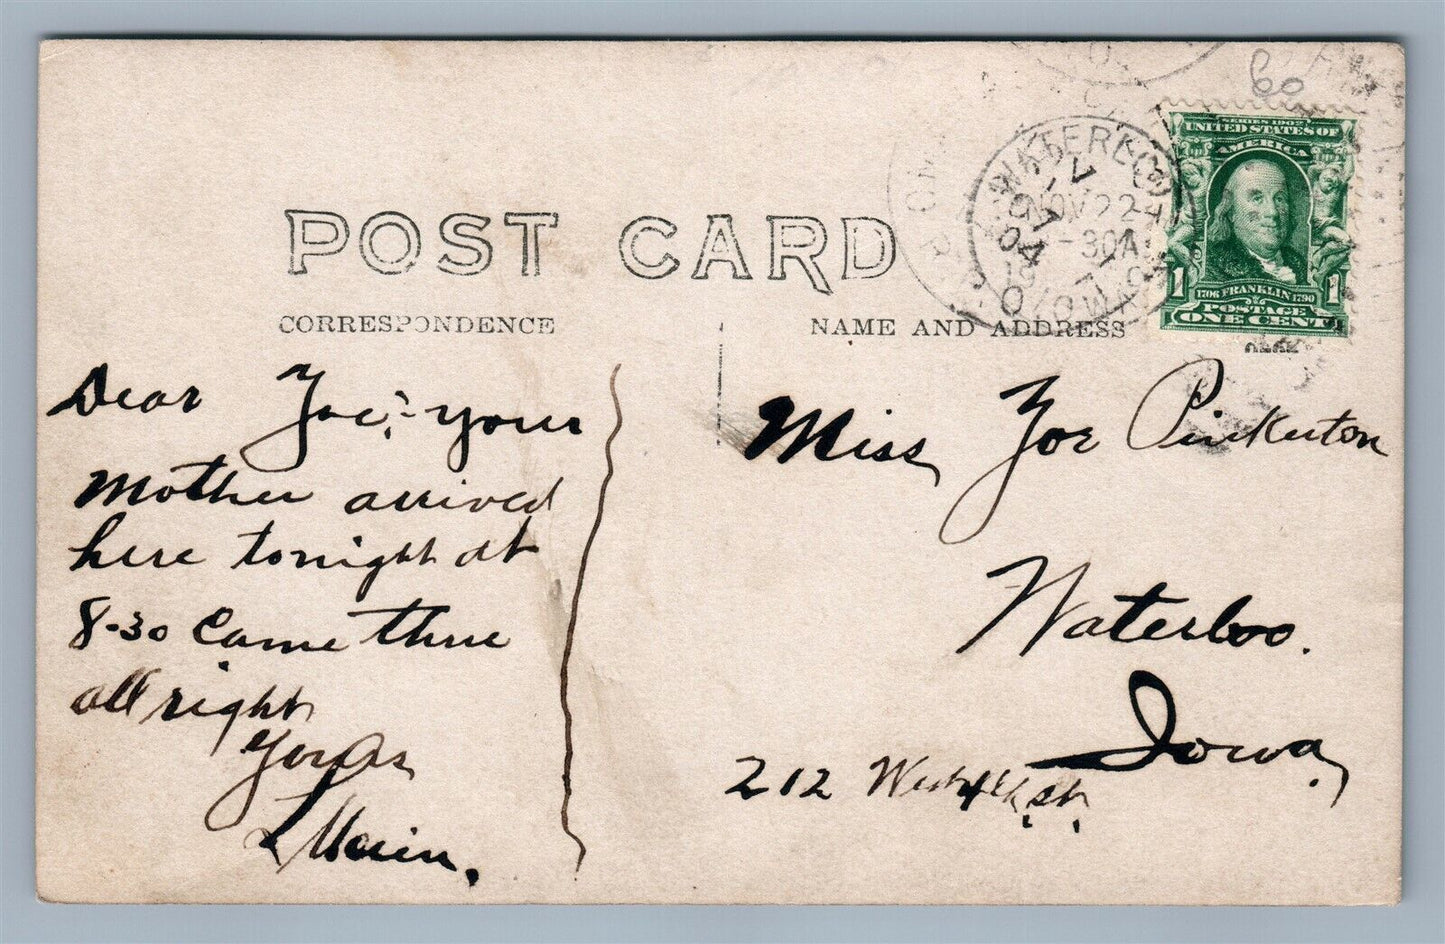 60
SERIES 1902
UNITED STATES OF
AMERICA
1 1
1706 FRANKLIN 1790
POSTAGE
ONE CENT
WATERLOO
NOV 22
-30A
IOWA
POST CARD
CORRESPONDENCE
NAME AND ADDRESS
Dear Zoe:- your
Mother arrived
here tonight at
8-30 Came thrue
all right
Yours
L Main.
Miss Zoe Pinkerton
Waterloo.
Iowa,
212 West 4th St.